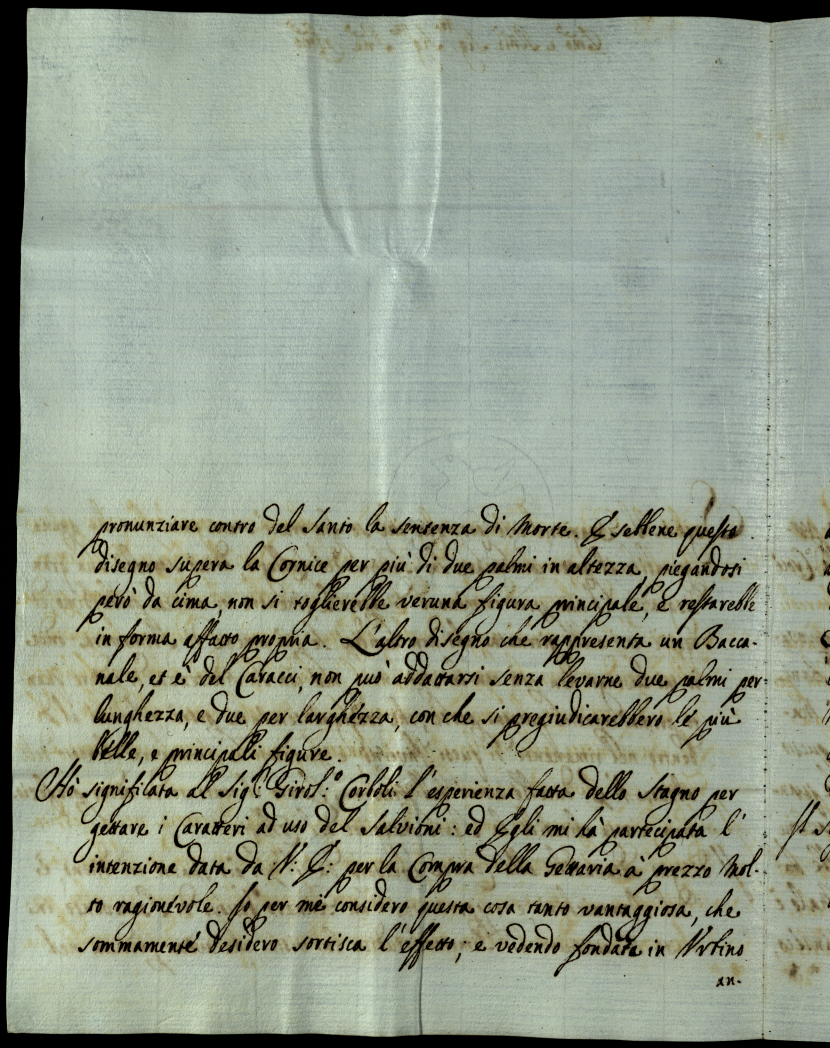 pronunziare contro del Santo la sentenza di Morte. E sebbene questo
disegno supera la Cornice per più di due palmi in altezza, piegandosi
però da cima, non si toglierebbe veruna figura principale, e restarebbe
in forma affatto propria. L'altro disegno che rappresenta un Bacca-
nale, et è del Caracci, non può addattarsi senza levarne due palmi per
lunghezza, e due per larghezza, con che si pregiudicarebbero le più
belle, e principali figure.
Hò significata al Sig.r Girol:o Corboli l'esperienza fatta dello Stagno per
gettare i Caratteri ad uso del Salvioni: ed Egli mi hà partecipata l'
intenzione data da V: E: per la Compra della Gettaria à prezzo mol-
to ragionevole. Io per me considero questa cosa tanto vantaggiosa, che
sommamente desidero sortisca l'effetto; e vedendo fondata in Urbino
an-